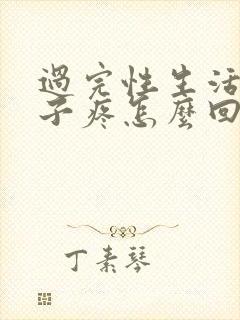 過完性生活
子疼怎麼回
丁素琴